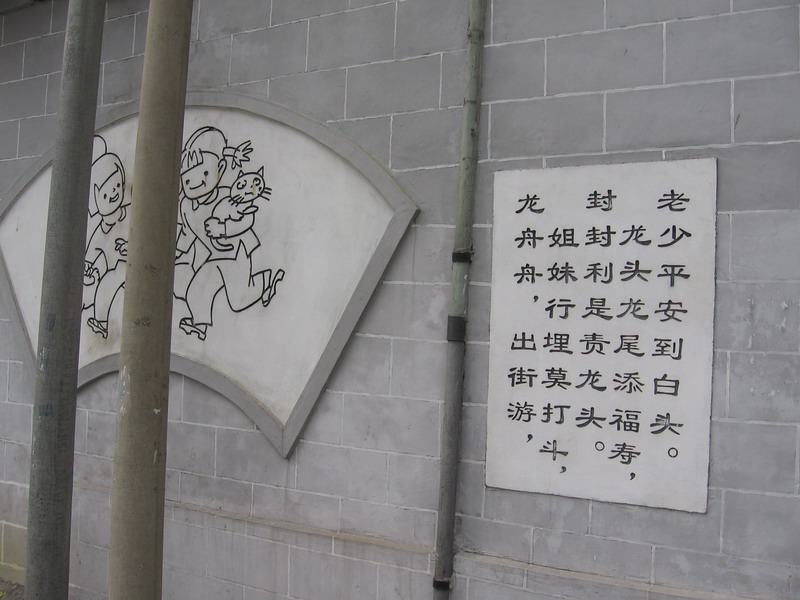 龙舟舟，出街游，
姐妹行埋莫打斗，
封封利是责龙头。
龙头龙尾添福寿，
老少平安到白头。